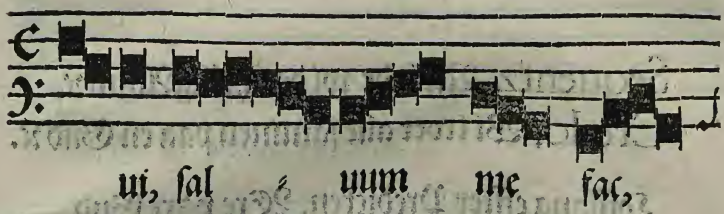 ui, sal - uum me fac,